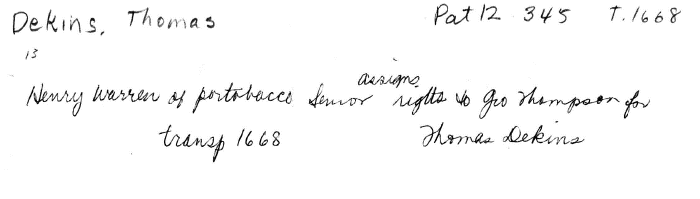 Dekins, Thomas Pat 12 345 T. 1668
13
assigns
Henry Warren of portobacco Senior rights to Geo Thompson for
transp 1668 Thomas Dekins